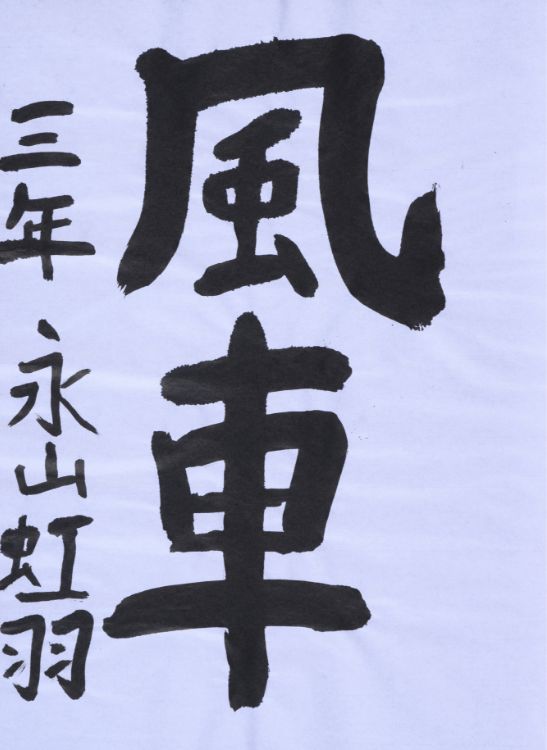 風車
三年 永山虹羽